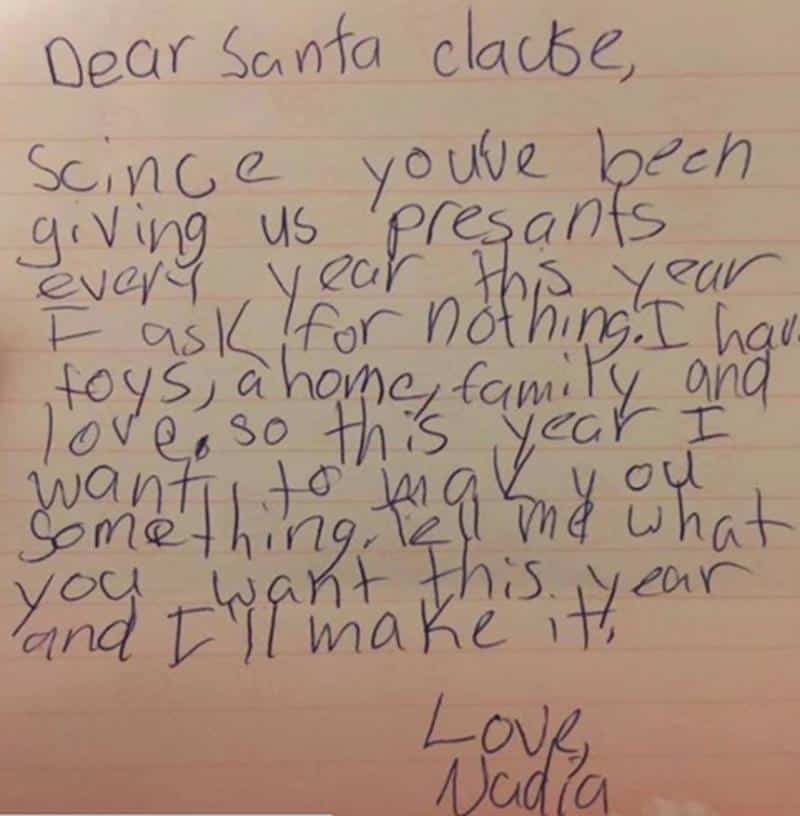 Dear Santa clause,
Scince you've been
giving us presants
every year this year
I ask for nothing. I hav
toys, a home, family and
love, so this year I
want to mak you
something. Tell me what
you want this year
and I'll make it!
Love,
Nadia